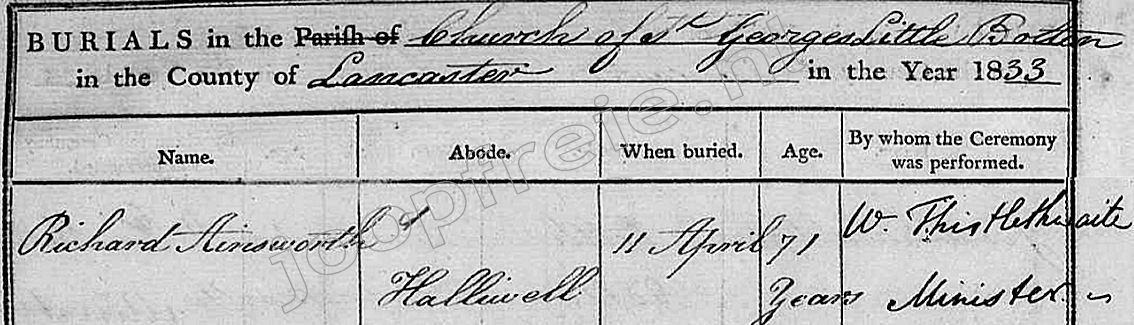 BURIALS in the Parish of Church of St Georges Little Bolton
in the County of Lancaster in the Year 1833
Name. Abode. When buried. Age. By whom the Ceremony was performed.
Richard Ainsworth 11 April 71 W. Thistlethwaite
Halliwell Years Minister
joopfreie.nl